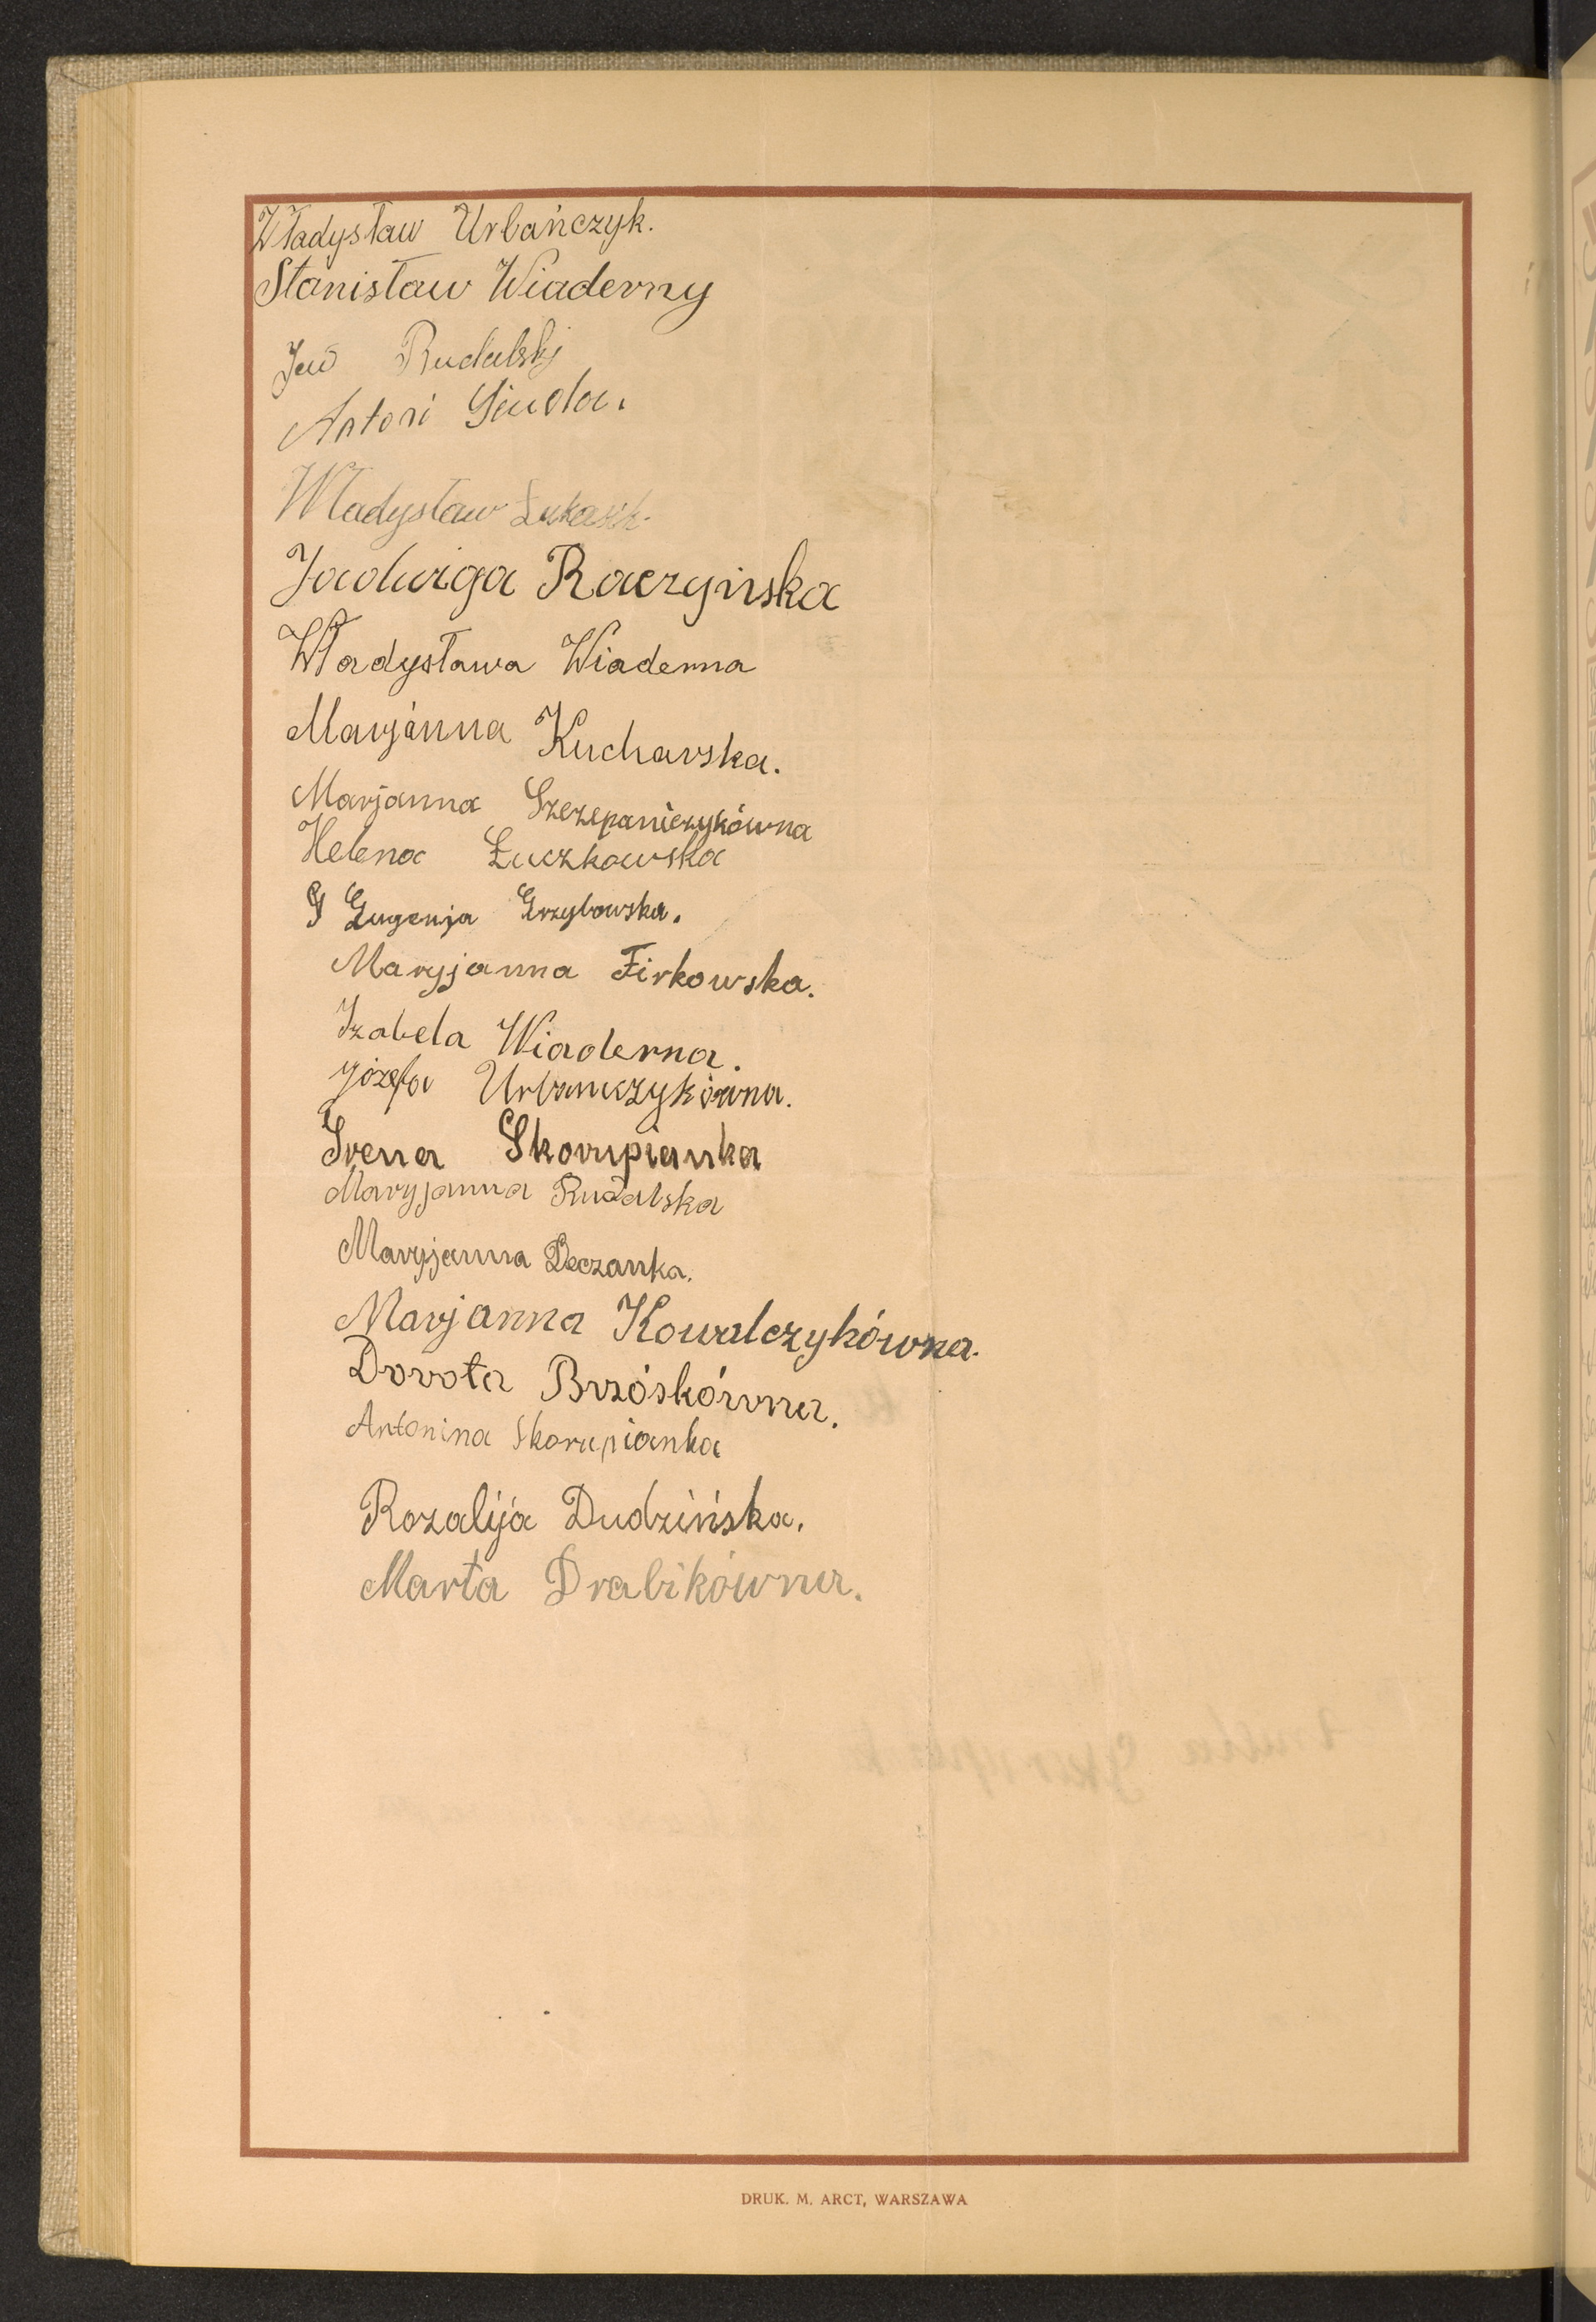 Władysław Urbańczyk.
Stanisław Wiaderny
Rudalski
Antoni
Władysław Łukasik.
Jadwiga Raczyńska
Władysława Wiaderna
Marjanna Kucharska.
Marjanna Szczepańczykówna
Helena Łuczkowska
G Eugenja Grzybowska.
Maryjanna Firkowska.
Izabela Wiaderna.
Józefa Urbanczykówna.
Irena Skorupianka
Maryjanna Rudalska
Maryjanna Deczanka.
Marjanna Kowalczykówna.
Dorota Brzóskówna.
Antonina Skorupianka
Rozalija Dudzińska.
Marta Drabikówna.
DRUK. M. ARCT, WARSZAWA